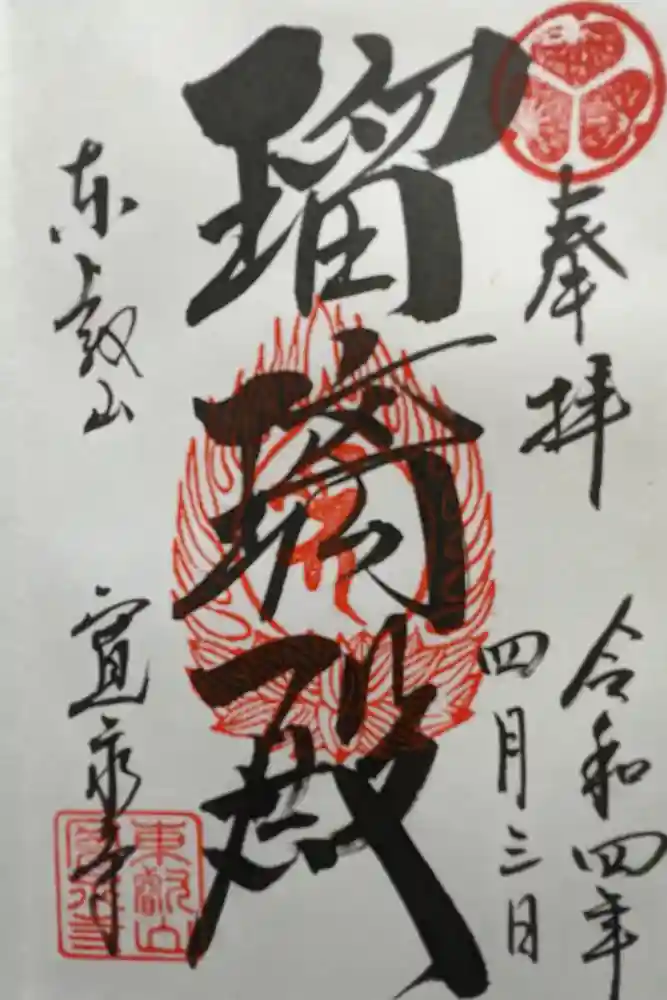 奉拝
令和四年
四月三日
瑠璃殿
東叡山
寛永寺
東叡山
寛永寺